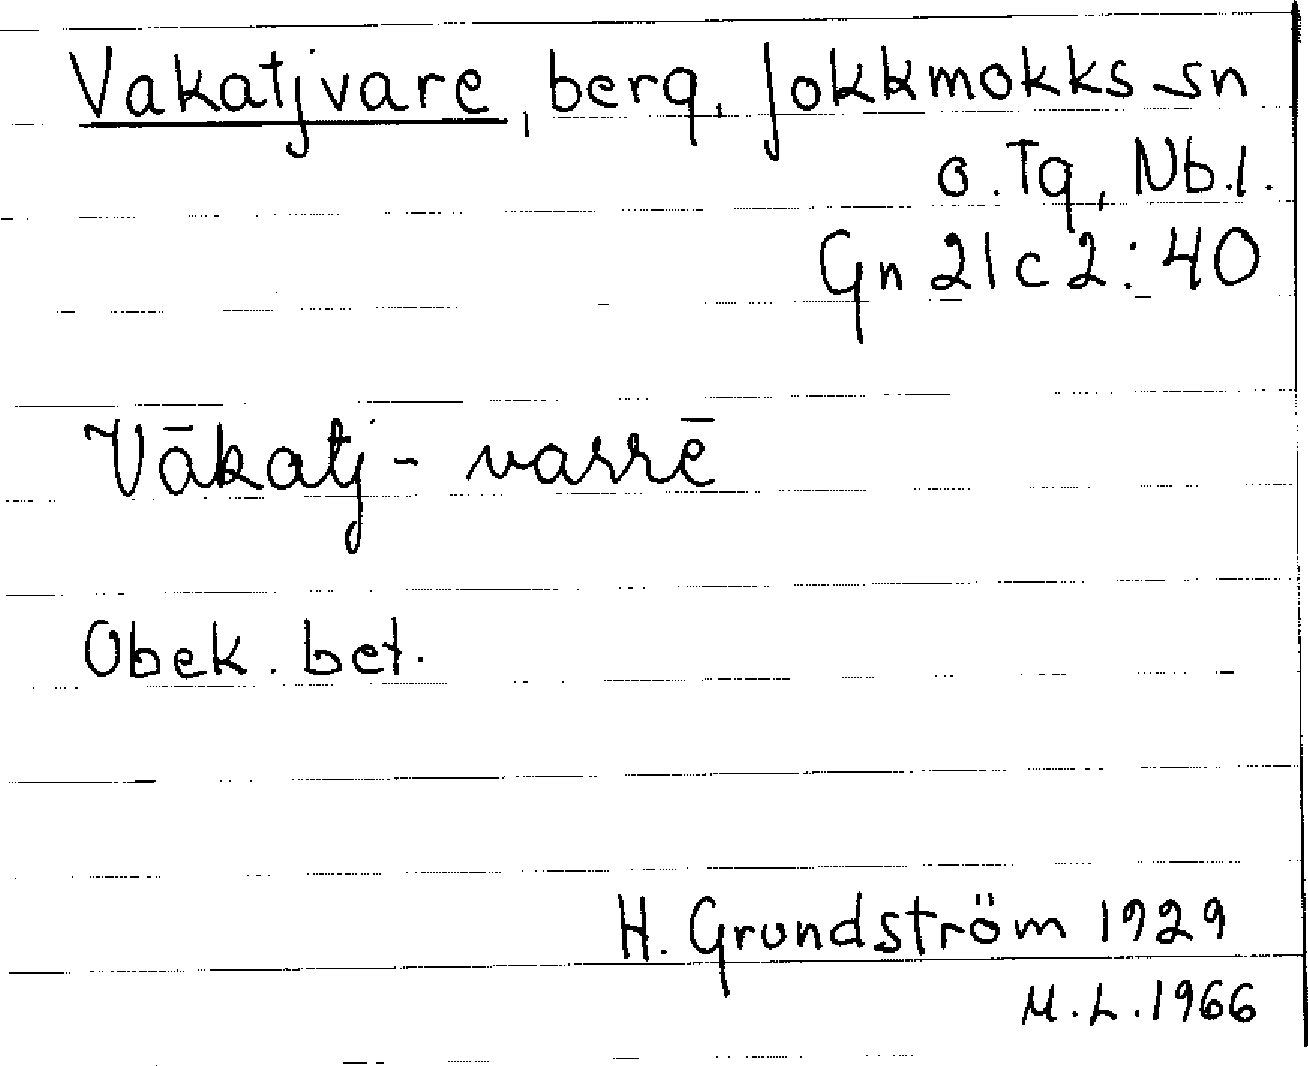 Vakatjvare, berg, Jokkmokks sn
o. Tg, Nb.l.
Gn 21 c 2:40
Vākatj - varrē
Obek. bet.
H. Grundström 1929
M.L. 1966